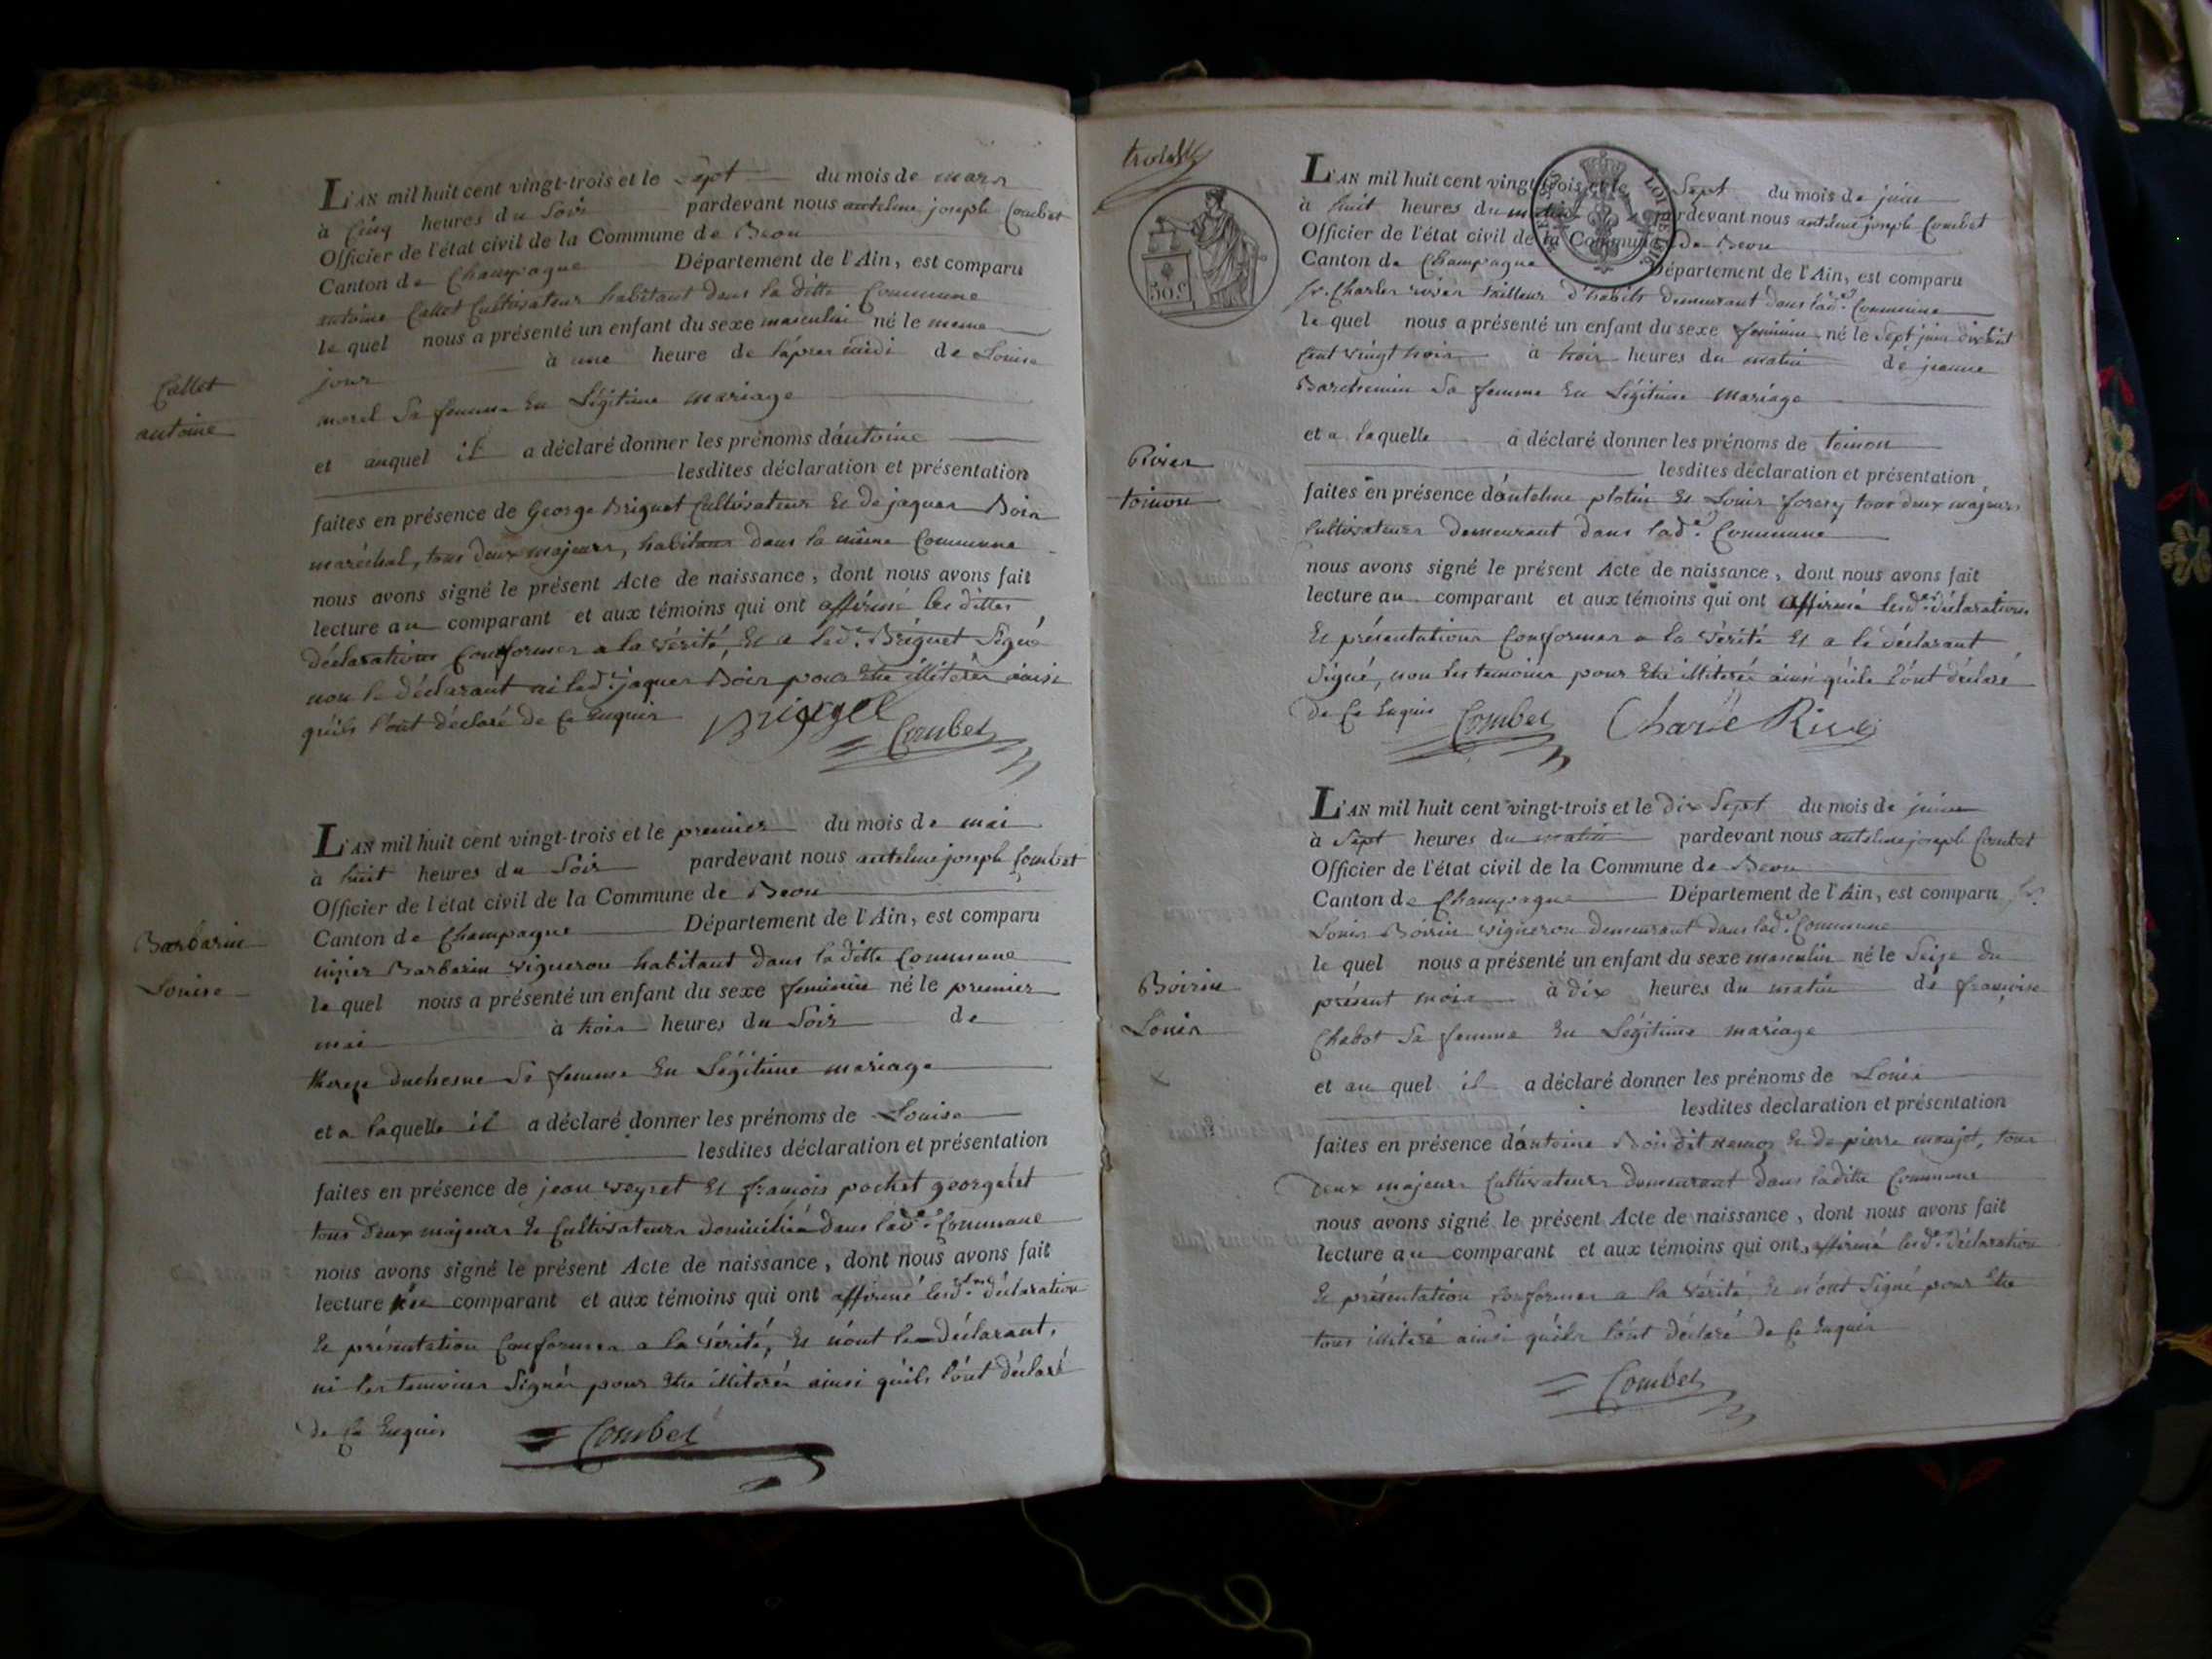 L'AN mil huit cent vingt-trois et le Sept du mois de mars
à Cinq heures du Soir pardevant nous antelme joseph Combet
Officier de l'état civil de la Commune de Beon
Canton de Champagne Département de l'Ain, est comparu
antoine Callet Cultivateur habitant dans la ditte Commune
le quel nous a présenté un enfant du sexe masculin né le meme
jour à une heure de l'aprer midi de Louise
Callet
antoine
morel Sa femme En Légitime mariage
et auquel il a déclaré donner les prénoms d'antoine
lesdites déclaration et présentation
faites en présence de George Briguet Cultivateur Et de jaques Boin
maréchal, tous deux majeurs, habitans dans la même Commune
nous avons signé le présent Acte de naissance, dont nous avons fait
lecture au comparant et aux témoins qui ont affirmé les dittes
déclarations Conformes a la vérité, Et a led. Briguet Signé
non le déclarant ni led. jaques Boin pour Etre illiterés ainsi
qu'ils l'ont déclaré de Ce Enquis
Combet
L'AN mil huit cent vingt-trois et le premier du mois de mai
à huit heures du Soir pardevant nous antelme joseph Combet
Officier de l'état civil de la Commune de Beon
Canton de Champagne Département de l'Ain, est comparu
Barbarin
Louise
nizier Barbarin vigneron habitant dans la ditte Commune
le quel nous a présenté un enfant du sexe feminin né le premier
mai à trois heures du Soir de
therese duchesne Sa femme En Légitime mariage
et a laquelle il a déclaré donner les prénoms de Louise
lesdites déclaration et présentation
faites en présence de jean veyret Et françois pochet georgelet
tous deux majeurs Et Cultivateurs domiciliés dans lad.e Commune
nous avons signé le présent Acte de naissance, dont nous avons fait
lecture au comparant et aux témoins qui ont affirmé lesd. déclaration
Et présentation Conformes a la vérité, Et n'ont le déclarant,
ni les temoins Signés pour Etre illiterés ainsi qu'ils l'ont déclaré
de Ce Enquis
Combet
50 c
L'AN mil huit cent vingt-trois et le Sept du mois de juin
à huit heures du matin pardevant nous antelme joseph Combet
Officier de l'état civil de la Commune de Beon
Canton de Champagne Département de l'Ain, est comparu
Sr. Charles River tailleur d'habits demeurant dans lad.e Commune
le quel nous a présenté un enfant du sexe feminin né le Sept juin dixhuit
Cent vingt trois à trois heures du matin de jeanne
Barchemin Sa femme En Légitime Mariage
et a laquelle a déclaré donner les prénoms de toinon
River
toinon
lesdites déclaration et présentation
faites en présence d'antelme plotin Et Louis forery tous deux majeurs
Cultivateurs demeurant dans lad.e Commune
nous avons signé le présent Acte de naissance, dont nous avons fait
lecture au comparant et aux témoins qui ont affirmé lesd.es déclarations
Et présentations Conformes a la vérité Et a le déclarant
Signé, non les temoins pour Etre illiterés ainsi qu'ils l'ont déclaré
de Ce Enquis Combet
L'AN mil huit cent vingt-trois et le dix Sept du mois de juin
à Sept heures du matin pardevant nous antelme joseph Combet
Officier de l'état civil de la Commune de Beon
Canton de Champagne Département de l'Ain, est comparu
Louis Boirin vigneron demeurant dans lad.e Commune
le quel nous a présenté un enfant du sexe masculin né le Seize du
Boirin
Louis
présent mois à dix heures du matin de françoise
Chabot Sa femme En Légitime mariage
et au quel il a déclaré donner les prénoms de Louis
lesdites déclaration et présentation
faites en présence d'antoine Boin dit Et de pierre tous
deux majeurs Cultivateurs demeurant dans laditte Commune
nous avons signé le présent Acte de naissance, dont nous avons fait
lecture au comparant et aux témoins qui ont affirmé lesd. déclaration
Et présentation Conformes a la vérité, Et n'ont Signé pour Etre
tous illiteré ainsi qu'ils l'ont déclaré de Ce Enquis
Combet